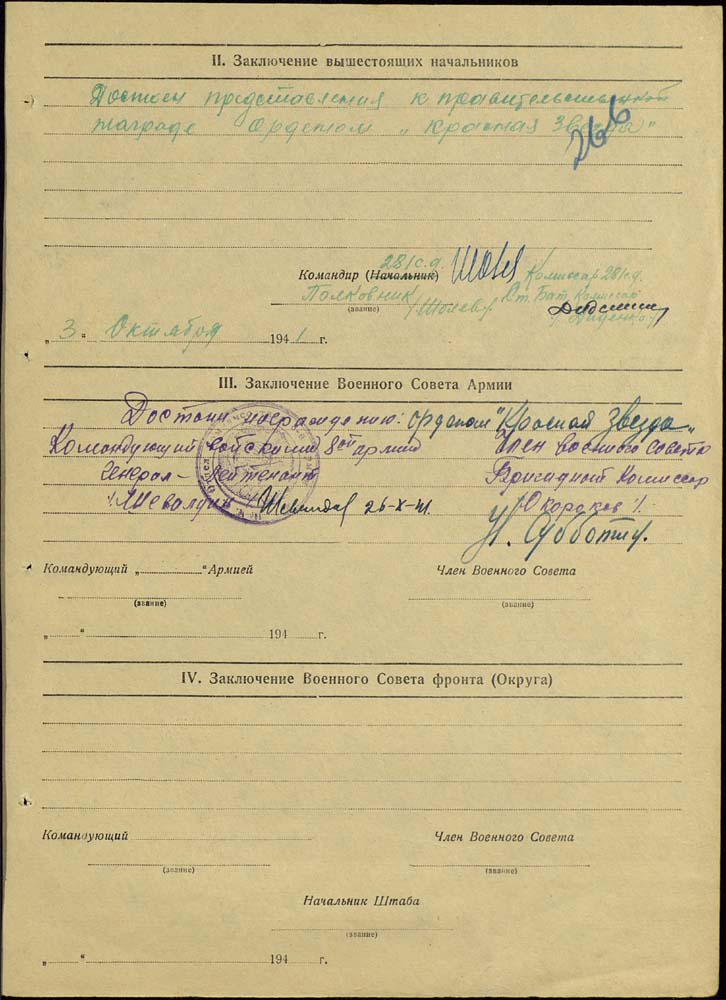 II. Заключение вышестоящих начальников
Достоен представления к правительственной
награде орденом „Красная Звезда"
266
281 с.д.
Командир (Начальник)
Комиссар 281 с.д.
Полковник
Ст. Бат. Комиссар
(звание)
„3" Октября 1941 г.
III. Заключение Военного Совета Армии
Достоин награждению: орденом "Красная Звезда"
Командующий войсками 8ой армии
Член военного совета
Генерал-Лейтенант
Бригадный Комиссар
/Шевалдин/ 26-X-41.
Окороков/.
Командующий „ “ Армией
Член Военного Совета
(звание)
(звание)
„ “ 194 г.
IV. Заключение Военного Совета фронта (Округа)
Командующий
Член Военного Совета
(звание)
(звание)
Начальник Штаба
(звание)
„ “ 194 г.